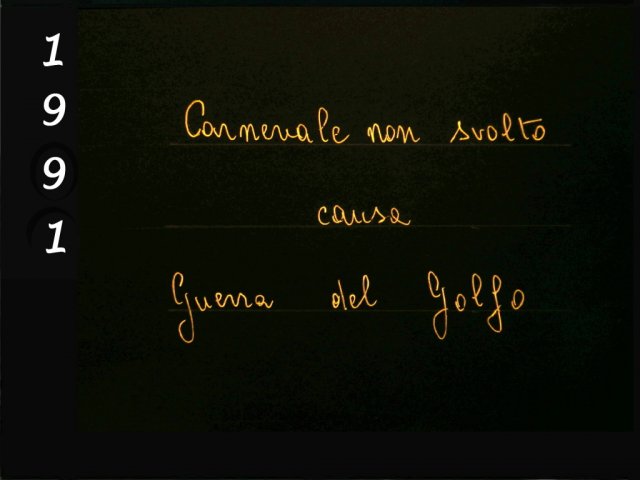 1
9
9
1
Carnevale non svolto
causa
Guerra del Golfo